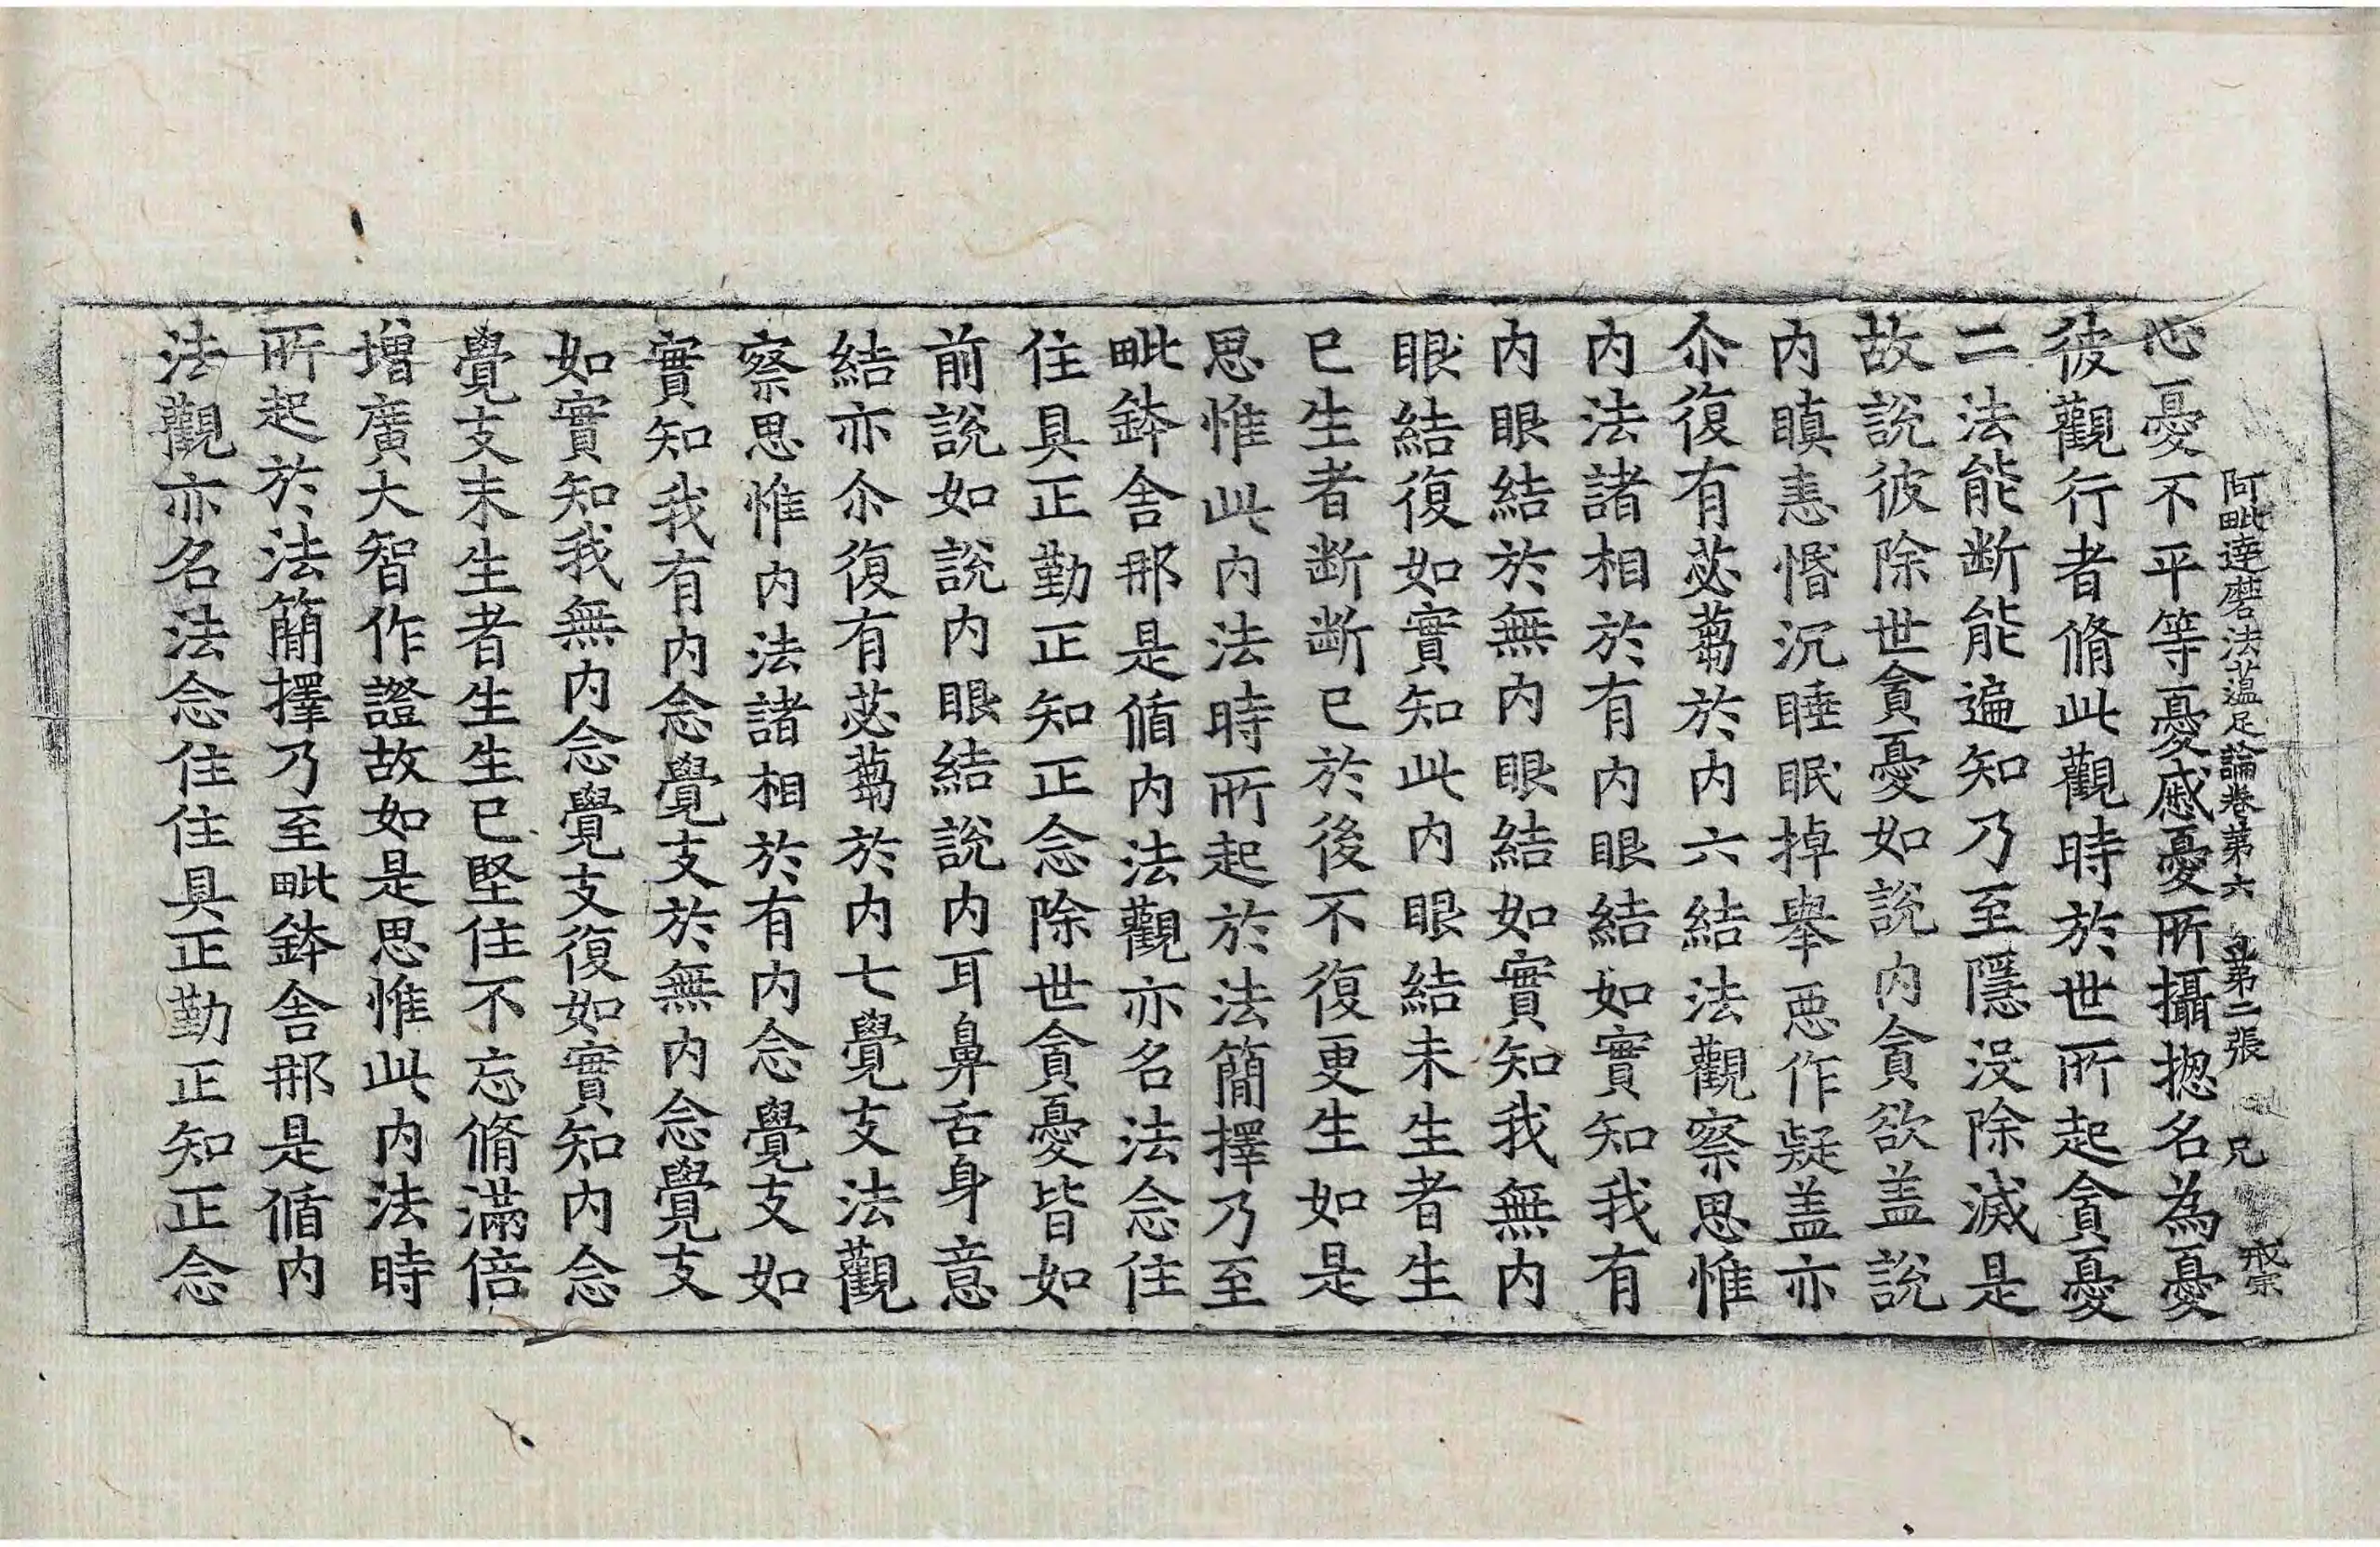 阿毗達磨法蕰足論卷第六 第二張 兄 戒宗
心憂不平等憂慼憂所攝揔名為憂
彼觀行者脩此觀時於世所起貪憂
二法能断能遍知乃至隱没除滅是
故說彼除世貪憂如說内貪欲盖說
内瞋恚惛沉睡眠掉舉惡作疑盖亦
尒復有苾蒭於内六結法觀察思惟
内法諸相於有内眼結如實知我有
内眼結於無内眼結如實知我無内
眼結復如實知此内眼結未生者生
已生者断断已於後不復更生如是
思惟此内法時所起於法簡擇乃至
毗鉢舍那是循内法觀亦名法念住
住具正勤正知正念除世貪憂皆如
前說如說内眼結說内耳鼻舌身意
結亦尒復有苾蒭於内七覺支法觀
察思惟内法諸相於有内念覺支如
實知我有内念覺支於無内念覺支
如實知我無内念覺支復如實知内念
覺支未生者生生已堅住不忘脩滿倍
增廣大智作證故如是思惟此内法時
所起於法簡擇乃至毗鉢舍那是循内
法觀亦名法念住住具正勤正知正念